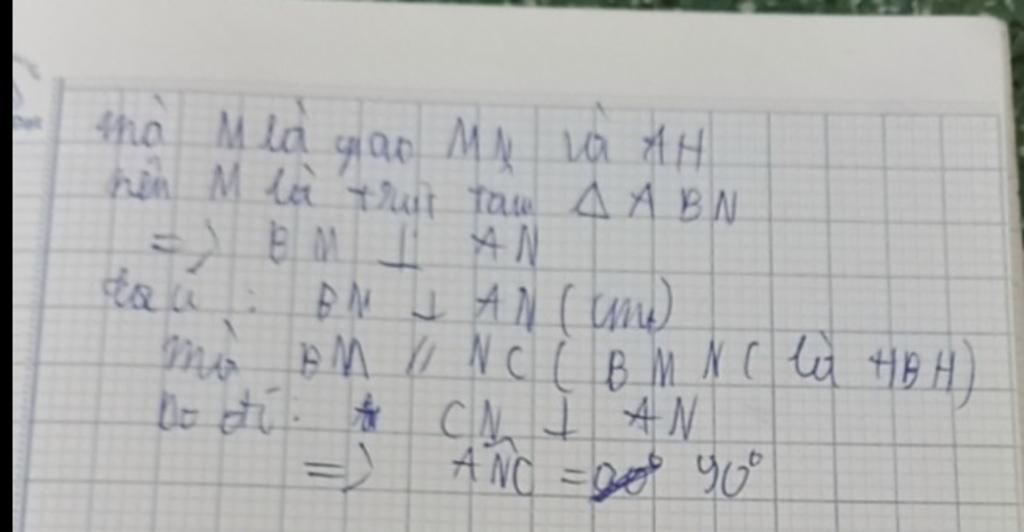 mà M là giao MN và AH
nên M là trực tâm Δ ABN
=> BM ⊥ AN
ta có : BM ⊥ AN (cmt)
mà BM // NC ( BMNC là HBH)
Do đó: CN ⊥ AN
=> ANC = 90°